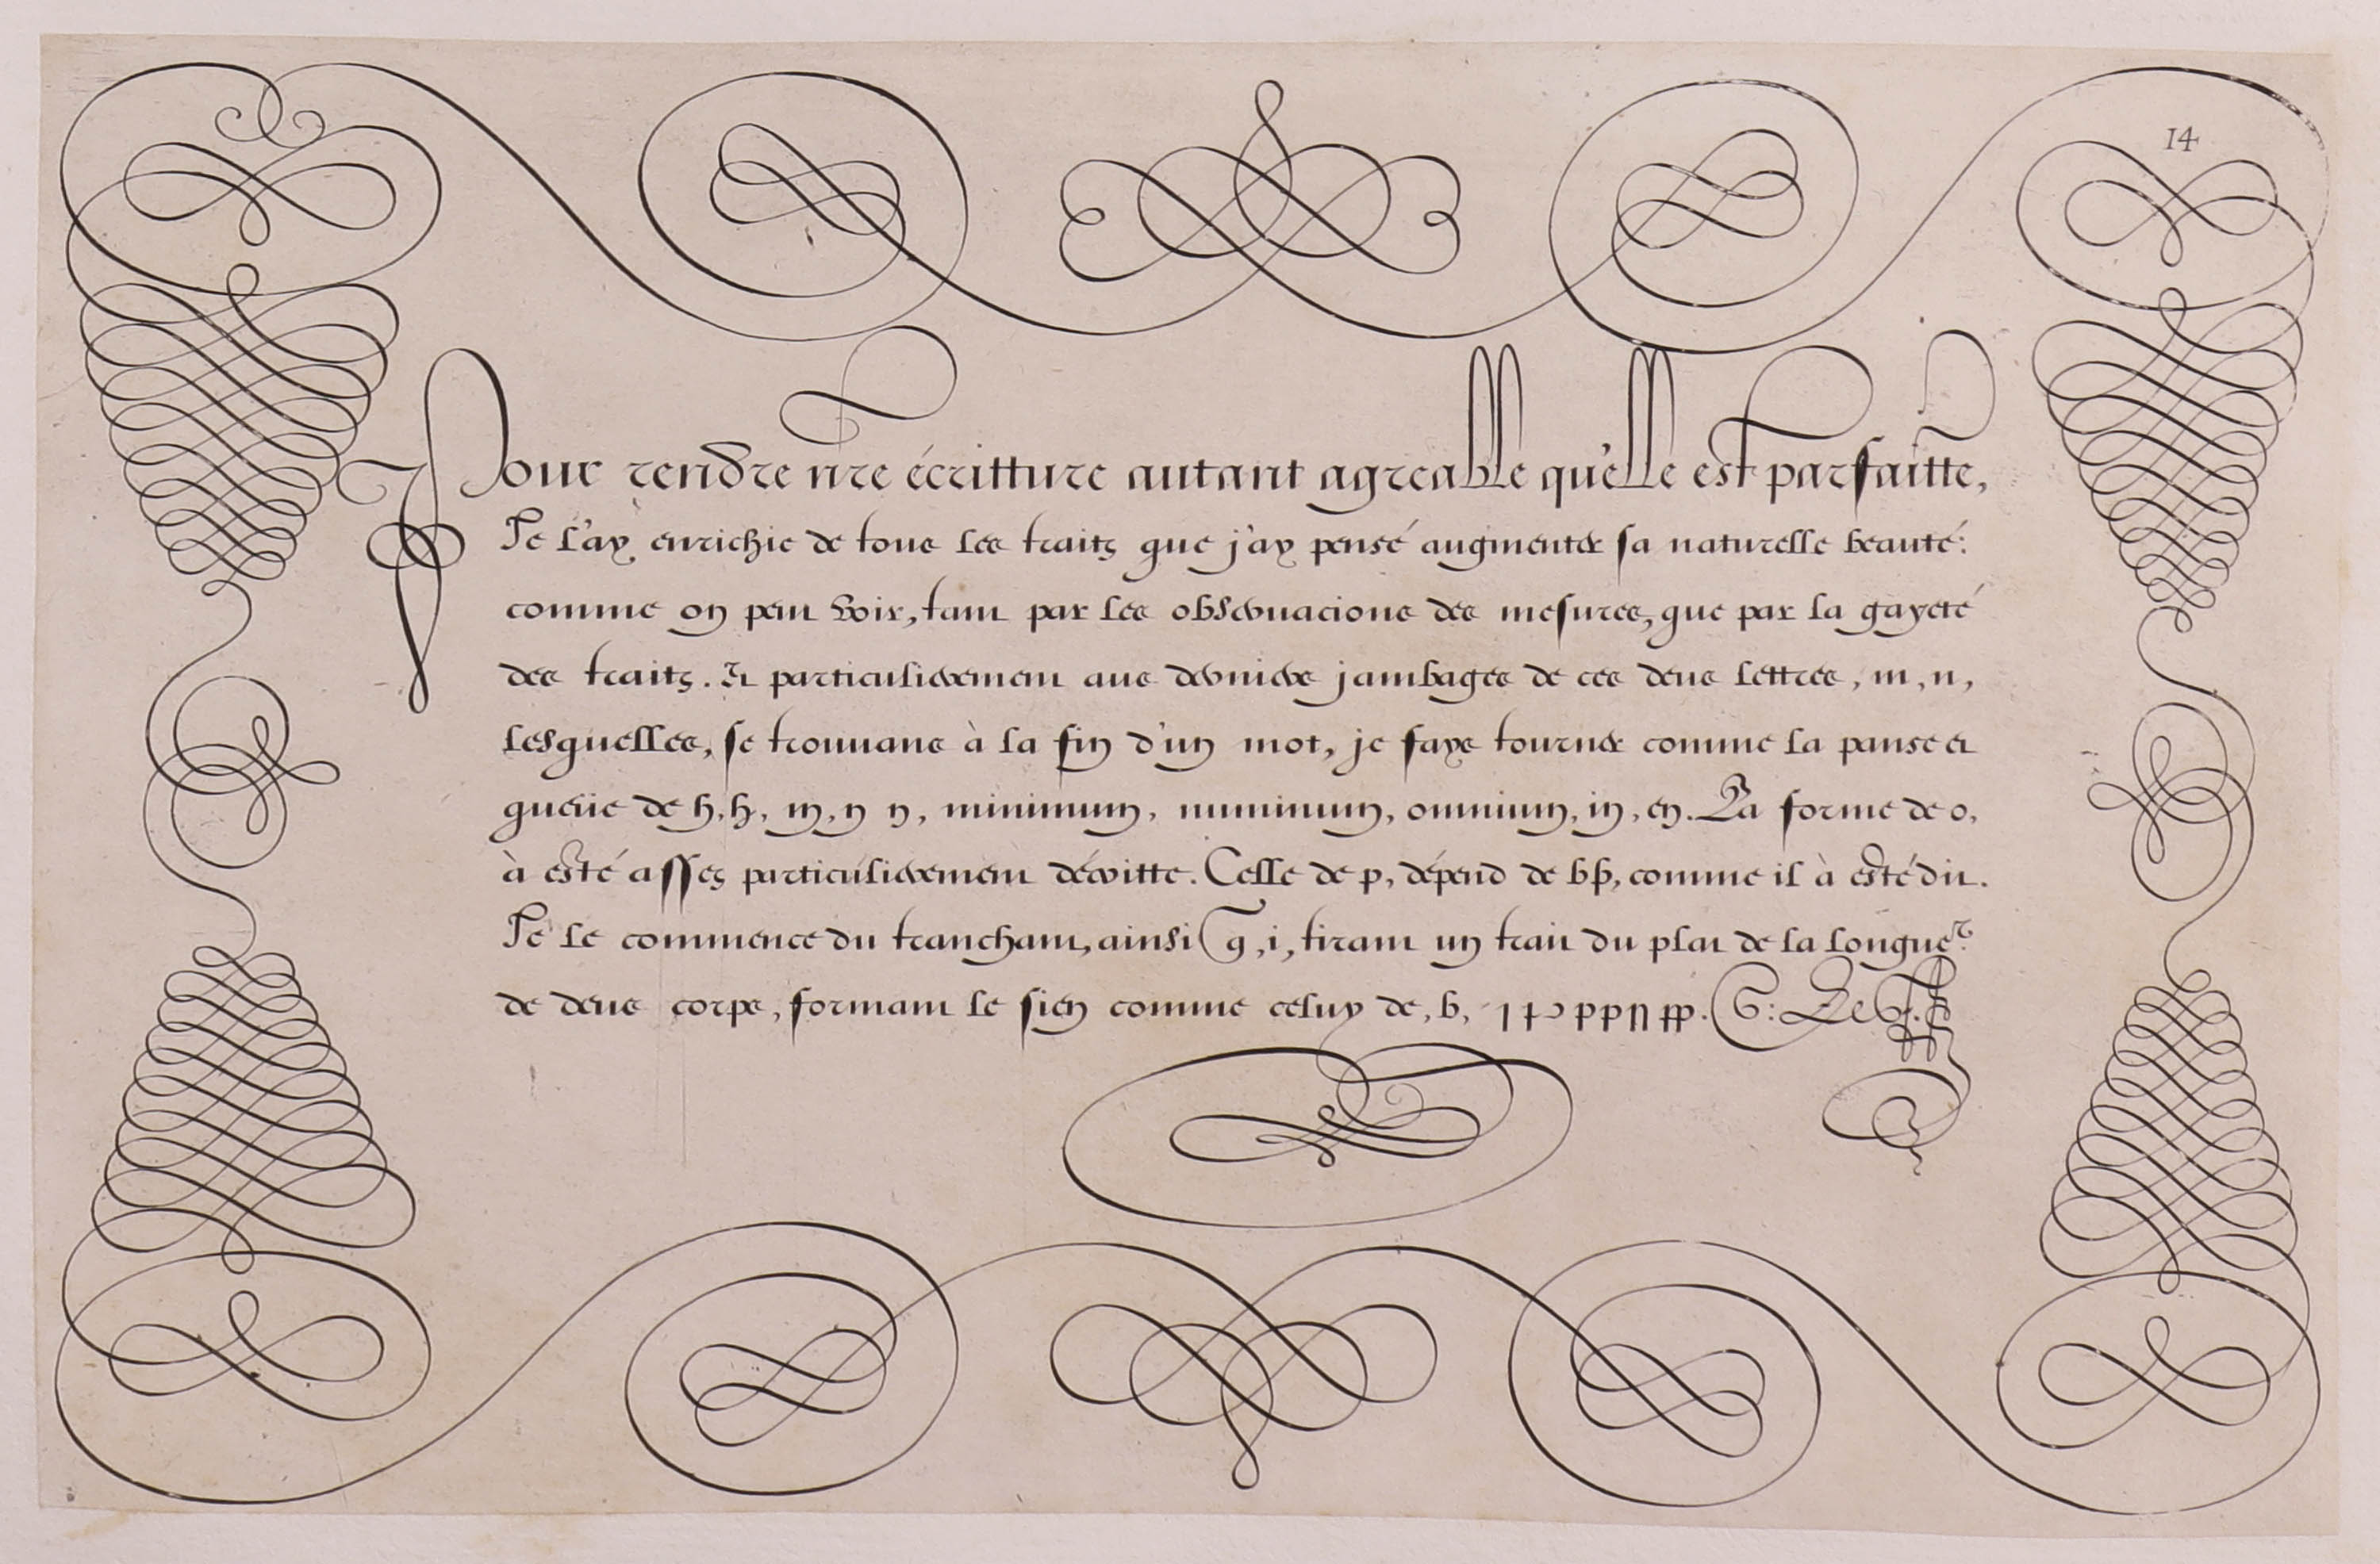 14
Pour rendre nre écritture autant agreable qu'elle est parfaitte,
Je l'ay enrichie de tous les traits que j'ay pensé augmenter sa naturelle beauté:
comme on peut voir, tant par les observacions des mesures, que par la gayeté
des traits. Et particulierement aus derniers jambages de ces deus lettres, m, n,
lesquelles, se trouvans à la fin d'un mot, je faxe tourner comme la panse et
queüe de h, h, m, n n, minimum, numinum, omnium, in, en. La forme de o,
à esté asses particulierement décritte. Celle de p, dépend de b þ, comme il à esté dit.
Je le commence du tranchant, ainsi q, i, tirant un trait du plat de la longuer
de deus corps, formant le sien comme celuy de, b,